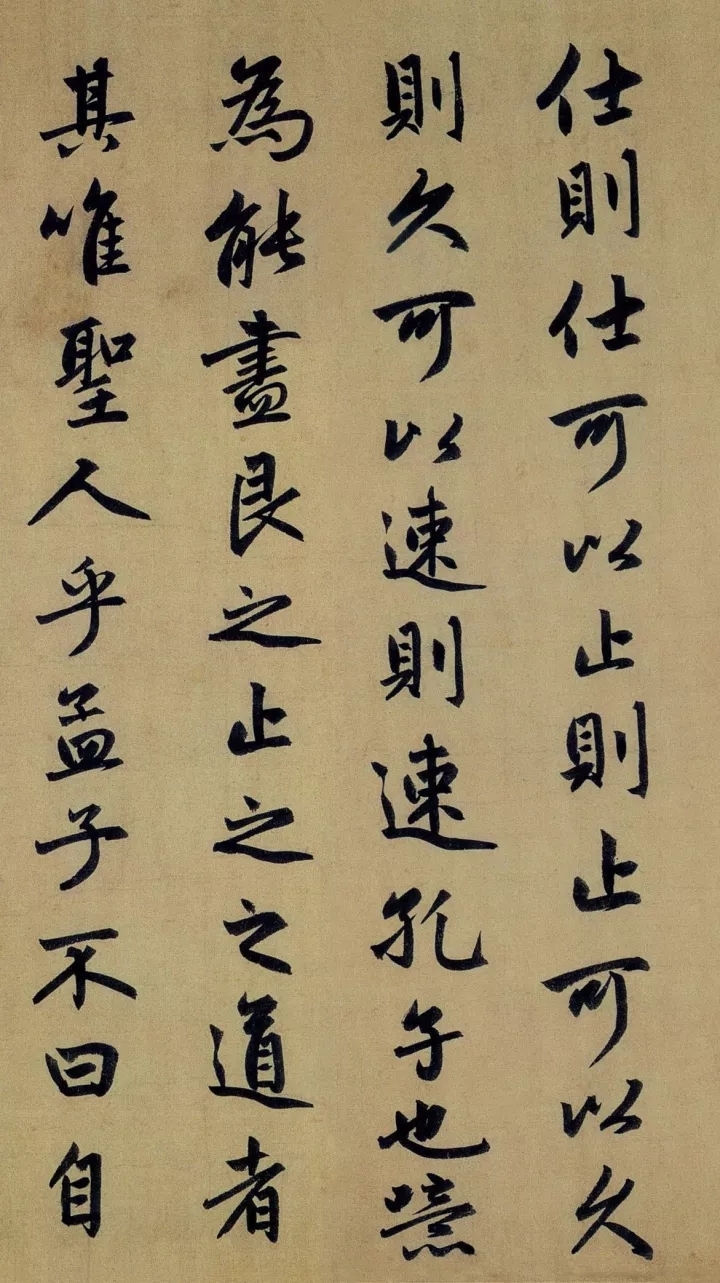 仕則仕可以止則止可以久
則久可以速則速孔子也噫
為能盡艮之止之之道者
其唯聖人乎孟子不曰自